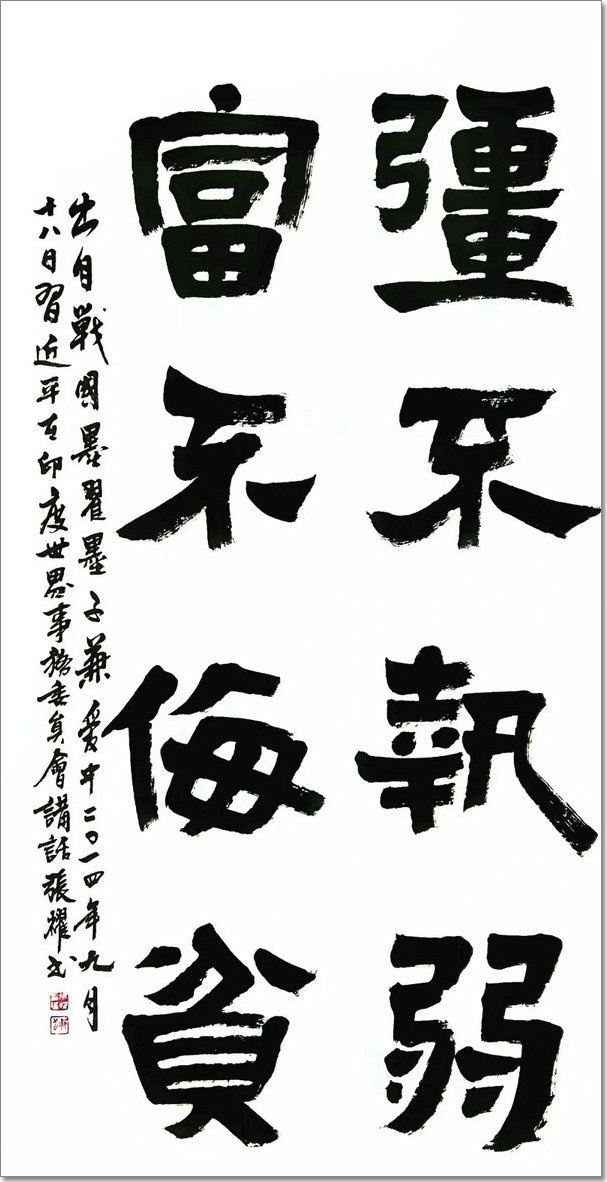 彊不執弱
富不侮貧
出自戰國墨翟墨子兼愛中二〇一四年九月
十八日習近平在印度世界事務委員會講話張耀书